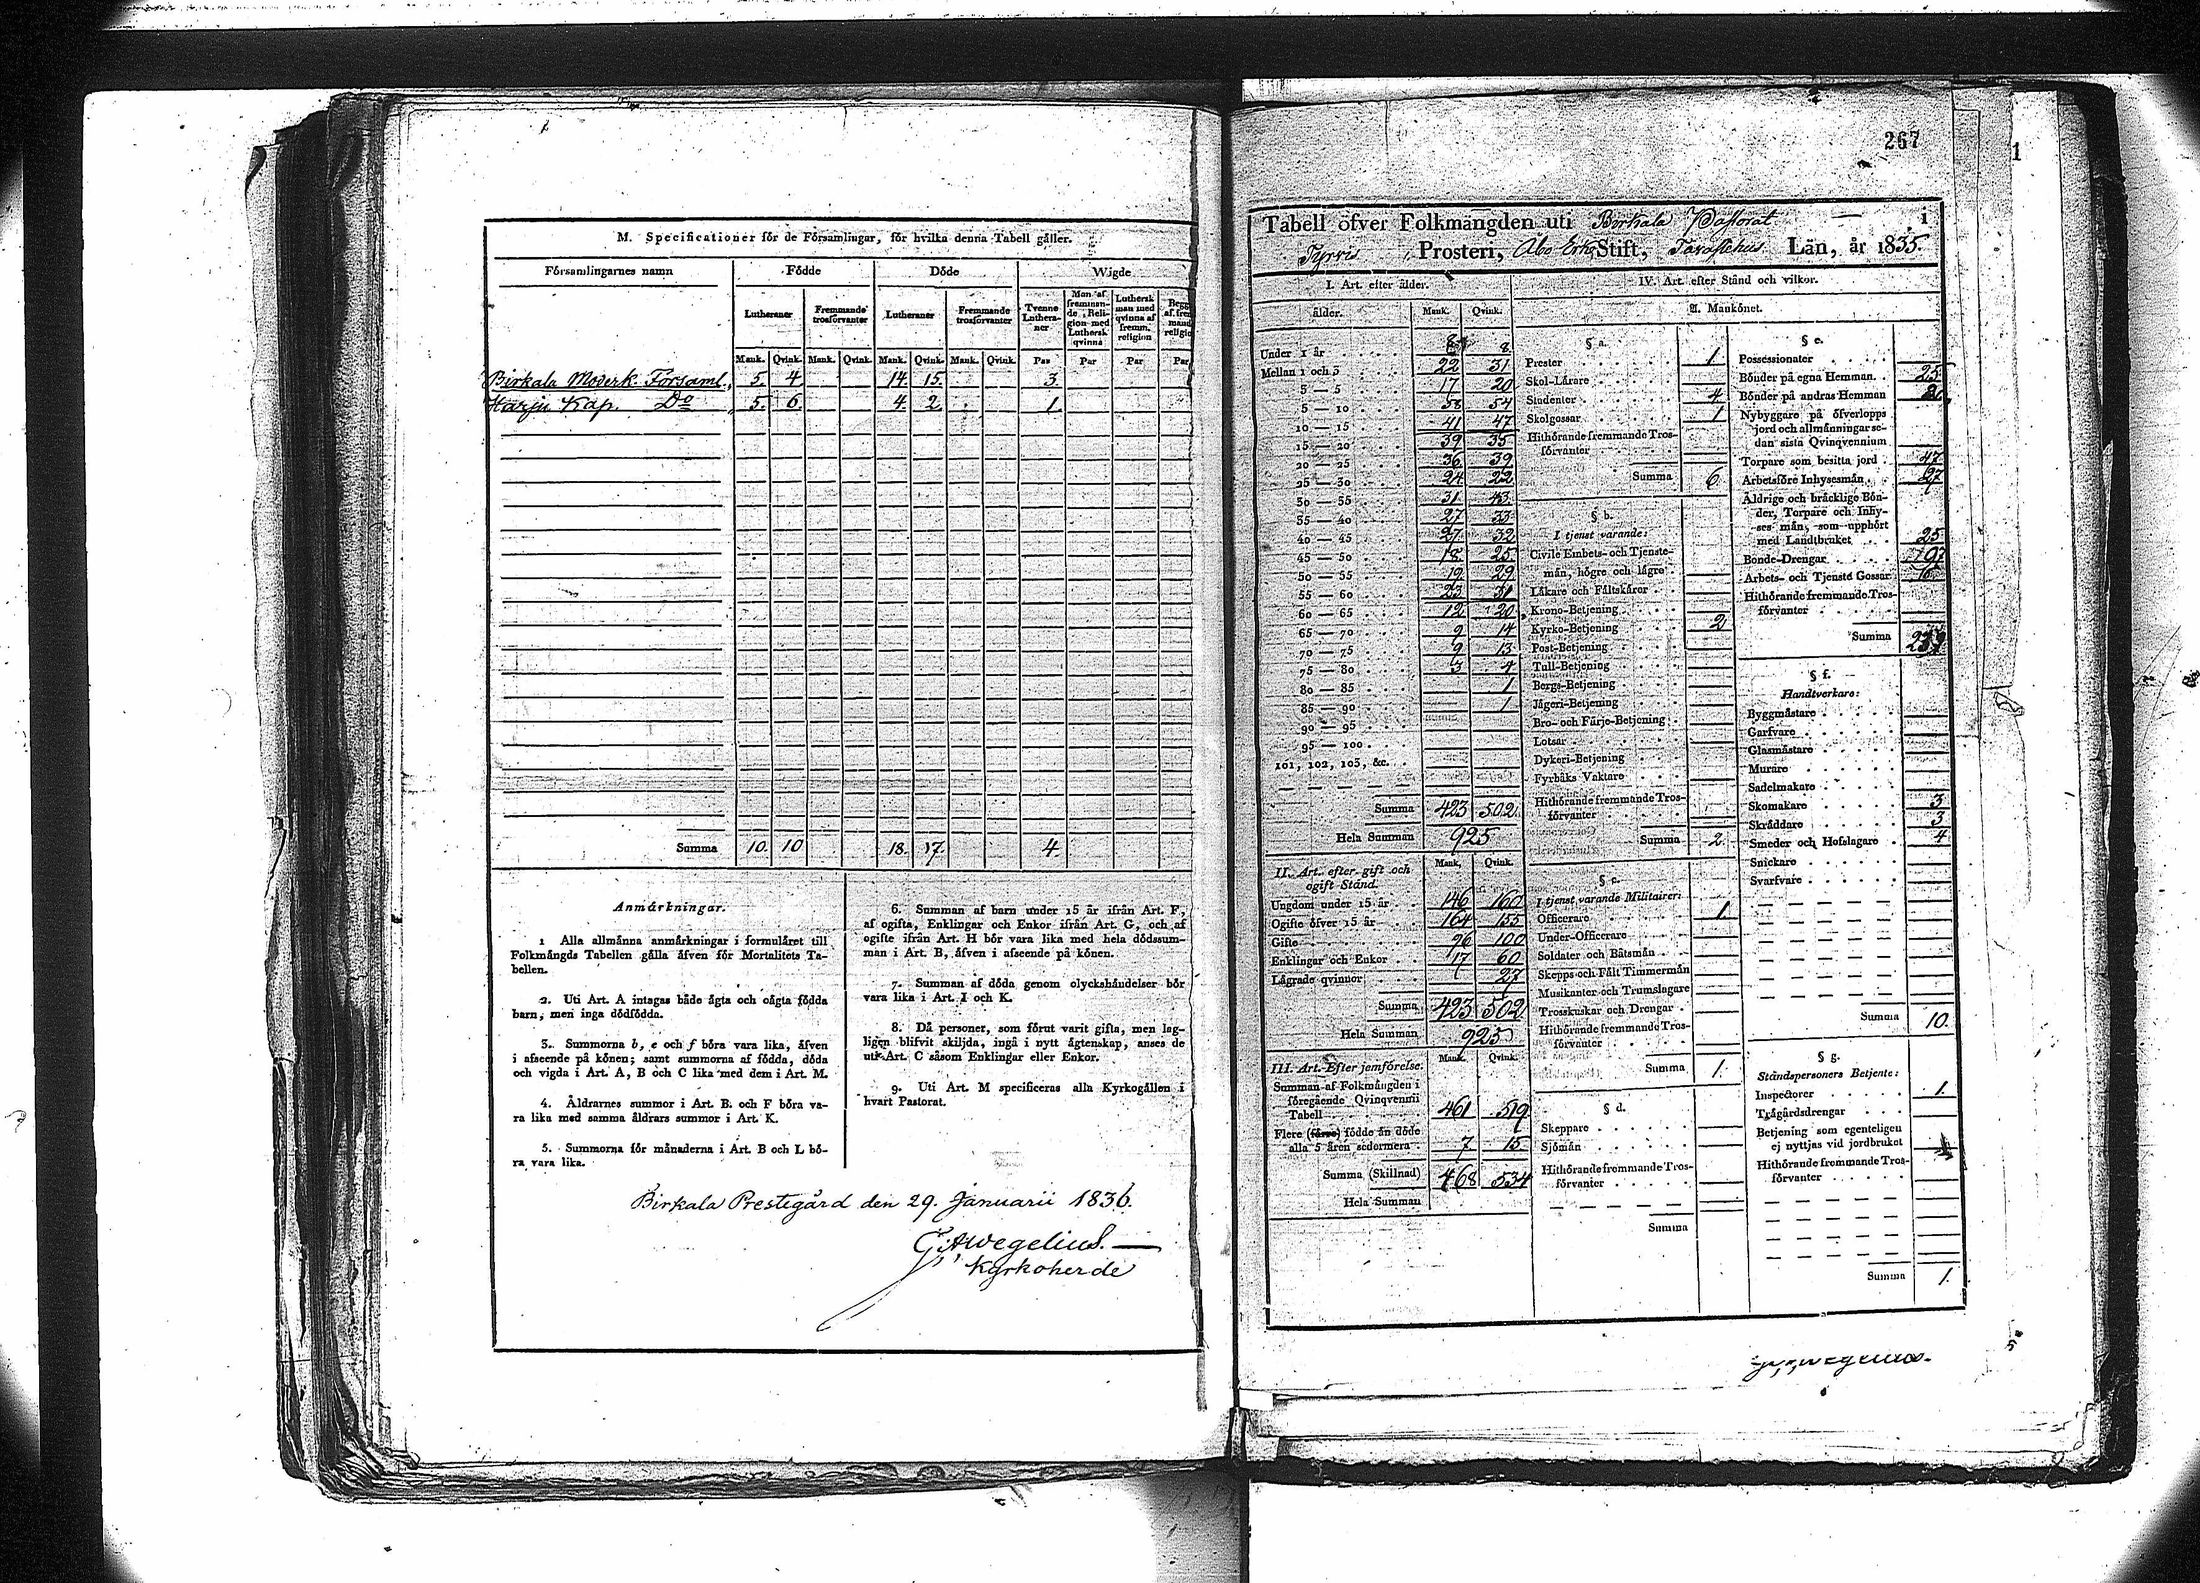 M. Specificationer för de Församlingar, för hvilka denna Tabell gäller.
Församlingarnes namn Födde Döde Wigde
Lutheraner Fremmande trosförvanter Lutheraner Fremmande trosförvanter Tvenne Lutheraner Man af fremmande Religion med Luthersk qvinna Luthersk man med qvinna af fremm. religion
Mank. Qvink. Mank. Qvink. Mank. Qvink. Mank. Qvink. Par Par Par Par
Birkala Moderk. Församl. 5. 4. 14. 15. 3.
Harju Kap. Do 5. 6. 4. 2. 1.
Summa 10. 10 18. 17. 4.
Anmärkningar.
1 Alla allmänna anmärkningar i formuläret till
Folkmängds Tabellen gälla äfven för Mortalitets Ta-
bellen.
2. Uti Art. A intagas både ägta och oägta födda
barn, men inga dödfödda.
3. Summorna b, e och f böra vara lika, äfven
i afseende på könen; samt summorna af födda, döda
och vigda i Art. A, B och C lika med dem i Art. M.
4. Åldrarnes summor i Art. B. och F böra va-
ra lika med samma åldrars summor i Art. K.
5. Summorna för månaderna i Art. B och L bö-
ra vara lika.
6. Summan af barn under 15 år ifrån Art. F,
af ogifta, Enklingar och Enkor ifrån Art. G, och af
ogifte ifrån Art. H bör vara lika med hela dödssum-
man i Art. B, äfven i afseende på könen.
7. Summan af döda genom olyckshändelser bör
vara lika i Art. I och K.
8. Då personer, som förut varit gifta, men lag-
ligen blifvit skiljda, ingå i nytt ägtenskap, anses de
uti Art. C såsom Enklingar eller Enkor.
9. Uti Art. M specificeras alla Kyrkogällen i
hvart Pastorat.
Birkala Prestegård den 29. Januarii 1836.
Wegelius.
Kyrkoherde
267
1
Tabell öfver Folkmängden uti Birkala Pastorat i
Tyrvis Prosteri, Åbo Erke Stift, Tavastehus Län, år 1835.
I. Art. efter ålder.
ålder. Mank. Qvink.
Under 1 år 8 8
Mellan 1 och 3 22 31
3 — 5 17 20
5 — 10 58 54
10 — 15 41 47
15 — 20 39 35
20 — 25 36 39
25 — 30 24 22
30 — 35 31 43
35 — 40 27 33
40 — 45 27 32
45 — 50 18 25
50 — 55 19 29
55 — 60 23 31
60 — 65 12 20
65 — 70 9 14
70 — 75 9 13
75 — 80 3 4
80 — 85 1
85 — 90 1
90 — 95
95 — 100
101, 102, 103, &c.
Summa 423 502
Hela Summan 925
II. Art. efter gift och
ogift Stånd. Mank. Qvink.
Ungdom under 15 år 146 160
Ogifte öfver 15 år 164 155
Gifte 96 100
Enklingar och Enkor 17 60
Lägrade qvinnor 27
Summa 423 502
Hela Summan 925
III. Art. Efter jemförelse. Mank. Qvink.
Summan af Folkmängden i
föregående Qvinqvennii
Tabell 461 519
Flere (färre) födde än döde
alla 5 åren sedermera 7 15
Summa (Skillnad) 468 534
Hela Summan
IV. Art. efter Stånd och vilkor.
A. Mankönet.
§ a.
Prester 1
Skol-Lärare
Studenter 4
Skolgossar 1
Hithörande fremmande Tros-
förvanter
Summa 6
§ b.
I tjenst varande:
Civile Embets- och Tjenste-
män, högre och lägre
Läkare och Fältskärer
Krono-Betjening
Kyrko-Betjening 2
Post-Betjening
Tull-Betjening
Bergs-Betjening
Jägeri-Betjening
Bro- och Färje-Betjening
Lotsar
Dykeri-Betjening
Fyrbåks Vaktare
Hithörande fremmande Tros-
förvanter
Summa 2
§ c.
I tjenst varande Militairer:
Officerare 1
Under-Officerare
Soldater och Båtsmän
Skepps och Fält Timmermän
Musikanter och Trumslagare
Trosskuskar och Drengar
Hithörande fremmande Tros-
förvanter
Summa 1.
§ d.
Skeppare
Sjömän
Hithörande fremmande Tros-
förvanter
Summa
§ e.
Possessionater
Bönder på egna Hemman 25
Bönder på andras Hemman
Nybyggare på öfverlopps
jord och allmänningar se-
dan sista Qvinqvennium
Torpare som besitta jord 47
Arbetsföre Inhysesmän 27
Åldrige och bräcklige Bön-
der, Torpare och Inhy-
ses män, som upphört
med Landtbruket 25
Bonde-Drengar
Arbets- och Tjenste Gossar 16
Hithörande fremmande Tros-
förvanter
Summa
§ f.
Handtverkare:
Byggmästare
Garfvare
Glasmästare
Murare
Sadelmakare
Skomakare 3
Skräddare 3
Smeder och Hofslagare 4
Snickare
Svarfvare
Summa 10.
§ g.
Ståndspersoners Betjente:
Inspectorer 1.
Trägårdsdrengar
Betjening som egenteligen
ej nyttjas vid jordbruket
Hithörande fremmande Tros-
förvanter
Summa 1.
Wegelius.